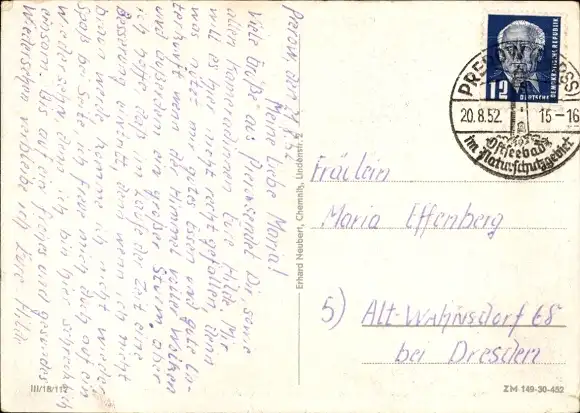 Prerow, den 19.8.52
Meine liebe Maria!
Viele Grüße aus Prerow sendet Dir, sowie
allen Kameradinnen Eure Hilde. Mir
will es hier nicht recht gefallen, denn
was nützt mir gutes Essen und gute Un-
terkunft wenn der Himmel voller Wolken
und außerdem ein großer Sturm, aber
ich hoffe daß im Laufe der Zeit eine
Besserung eintritt denn wenn ich nicht
braun werde, komme ich nicht wieder.
Spaß bei Seite ich freue mich doch auf ein
wiedersehn denn ich bin hier schrecklich
einsam. Bis auf ein frohes und gesundes
Wiedersehen verbleibe ich Eure Hilde
Erhard Neubert, Chemnitz, Lindenstr.
DEUTSCHE DEMOKRATISCHE REPUBLIK
12
PREROW
20.8.52 15-16
Ostseebad
im Naturschutzgebiet
Fräulein
Maria Effenberg
5) Alt-Wahnsdorf 68
bei Dresden
III/18/112
ZM 149-30-452